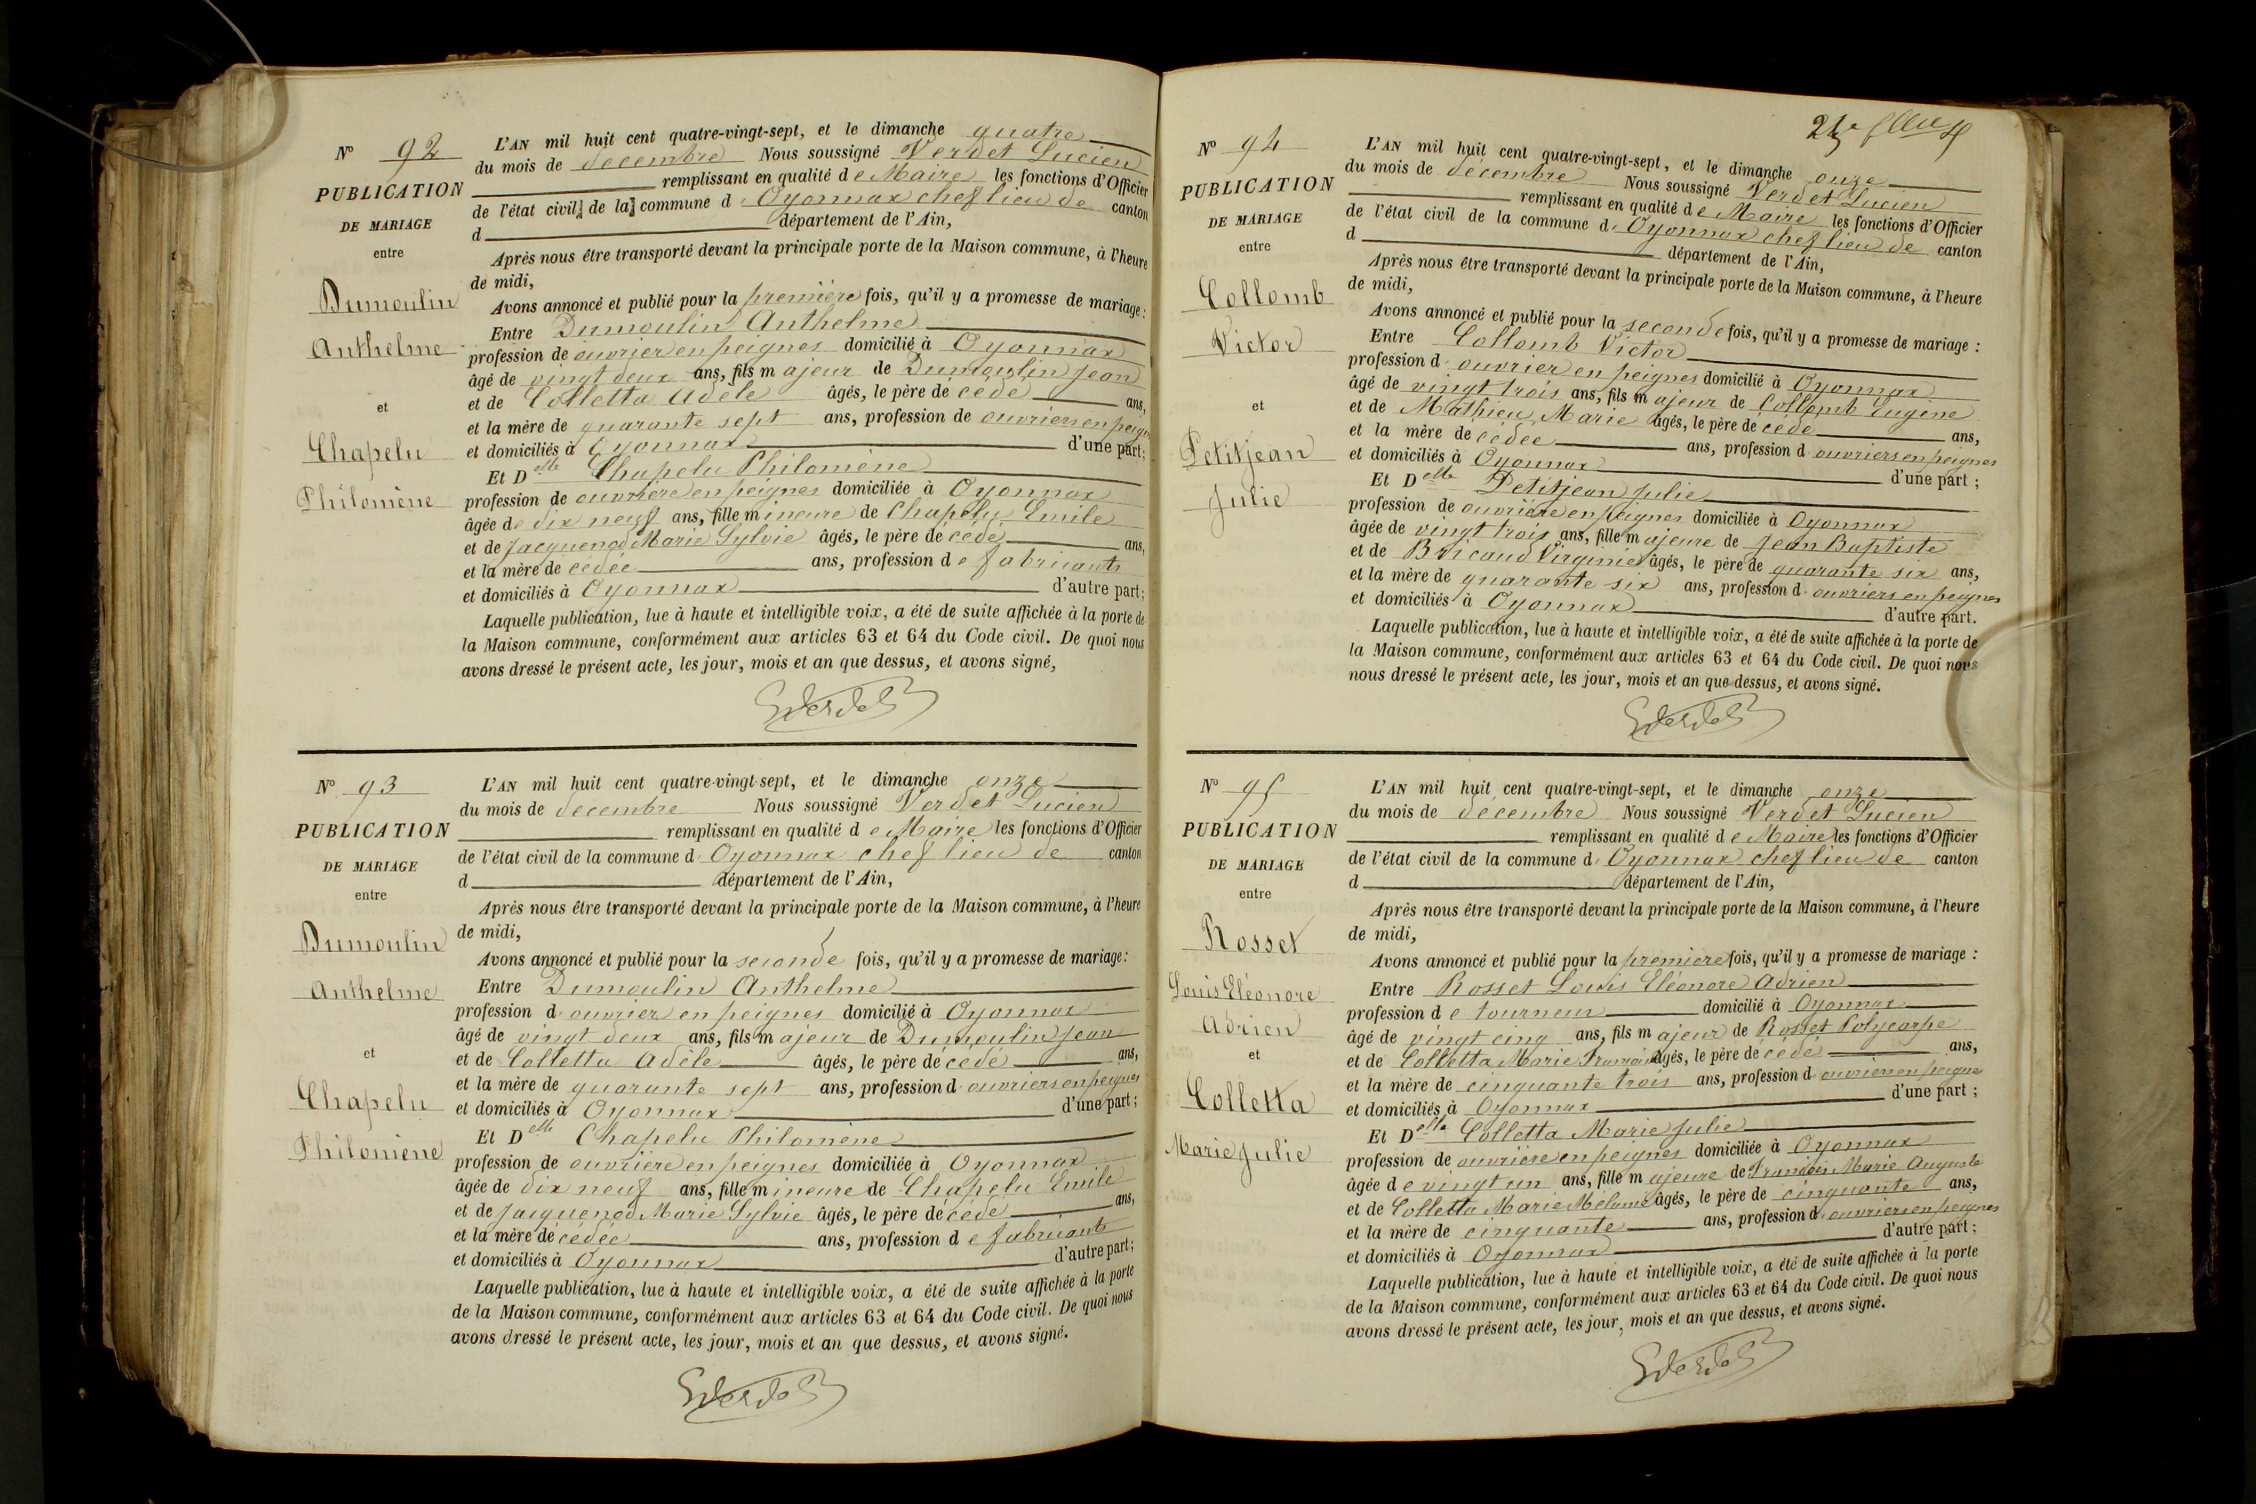 N° 92
PUBLICATION
DE MARIAGE
entre
Dumoulin
Anthelme
et
Chapelu
Philomène
L'AN mil huit cent quatre-vingt-sept, et le dimanche quatre
du mois de décembre Nous soussigné Verdet Lucien
remplissant en qualité de Maire les fonctions d'Officier
de l'état civil de la commune d' Oyonnax chef lieu de canton
d département de l'Ain,
Après nous être transporté devant la principale porte de la Maison commune, à l'heure
de midi,
Avons annoncé et publié pour la première fois, qu'il y a promesse de mariage :
Entre Dumoulin Anthelme
profession de ouvrier en peignes domicilié à Oyonnax
âgé de vingt deux ans, fils majeur de Dumoulin Jean
et de Colletta Adèle âgés, le père décédé ans,
et la mère de quarante sept ans, profession de ouvriers en peignes
et domiciliés à Oyonnax d'une part;
Et Delle Chapelu Philomène
profession de ouvrière en peignes domiciliée à Oyonnax
âgée de dix neuf ans, fille mineure de Chapelu Emile
et de Jacquenod Marie Sylvie âgés, le père décédé ans,
et la mère décédée ans, profession de fabricants
et domiciliés à Oyonnax d'autre part;
Laquelle publication, lue à haute et intelligible voix, a été de suite affichée à la porte de
la Maison commune, conformément aux articles 63 et 64 du Code civil. De quoi nous
avons dressé le présent acte, les jour, mois et an que dessus, et avons signé,
Verdet
N° 93
PUBLICATION
DE MARIAGE
entre
Dumoulin
Anthelme
et
Chapelu
Philomène
L'AN mil huit cent quatre-vingt-sept, et le dimanche onze
du mois de décembre Nous soussigné Verdet Lucien
remplissant en qualité de Maire les fonctions d'Officier
de l'état civil de la commune d' Oyonnax chef lieu de canton
d département de l'Ain,
Après nous être transporté devant la principale porte de la Maison commune, à l'heure
de midi,
Avons annoncé et publié pour la seconde fois, qu'il y a promesse de mariage :
Entre Dumoulin Anthelme
profession d' ouvrier en peignes domicilié à Oyonnax
âgé de vingt deux ans, fils majeur de Dumoulin Jean
et de Colletta Adèle âgés, le père décédé ans,
et la mère de quarante sept ans, profession d' ouvriers en peignes
et domiciliés à Oyonnax d'une part;
Et Delle Chapelu Philomène
profession de ouvrière en peignes domiciliée à Oyonnax
âgée de dix neuf ans, fille mineure de Chapelu Emile
et de Jacquenod Marie Sylvie âgés, le père décédé ans,
et la mère décédée ans, profession de fabricants
et domiciliés à Oyonnax d'autre part;
Laquelle publication, lue à haute et intelligible voix, a été de suite affichée à la porte
de la Maison commune, conformément aux articles 63 et 64 du Code civil. De quoi nous
avons dressé le présent acte, les jour, mois et an que dessus, et avons signé.
Verdet
N° 94
PUBLICATION
DE MARIAGE
entre
Collomb
Victor
et
Petitjean
Julie
L'AN mil huit cent quatre-vingt-sept, et le dimanche onze
du mois de décembre Nous soussigné Verdet Lucien
remplissant en qualité de Maire les fonctions d'Officier
de l'état civil de la commune d' Oyonnax chef lieu de canton
d département de l'Ain,
Après nous être transporté devant la principale porte de la Maison commune, à l'heure
de midi,
Avons annoncé et publié pour la seconde fois, qu'il y a promesse de mariage :
Entre Collomb Victor
profession d' ouvrier en peignes domicilié à Oyonnax
âgé de vingt trois ans, fils majeur de Collomb Eugène
et de Mathieu Marie âgés, le père décédé ans,
et la mère décédée ans, profession d' ouvriers en peignes
et domiciliés à Oyonnax d'une part ;
Et Delle Petitjean Julie
profession de ouvrière en peignes domiciliée à Oyonnax
âgée de vingt trois ans, fille majeure de Jean Baptiste
et de Virginie âgés, le père de quarante six ans,
et la mère de quarante six ans, profession d' ouvriers en peignes
et domiciliés à Oyonnax d'autre part.
Laquelle publication, lue à haute et intelligible voix, a été de suite affichée à la porte de
la Maison commune, conformément aux articles 63 et 64 du Code civil. De quoi nous
nous dressé le présent acte, les jour, mois et an que dessus, et avons signé.
Verdet
N° 95
PUBLICATION
DE MARIAGE
entre
Rosset
Louis Eléonore
Adrien
et
Colletta
Marie Julie
L'AN mil huit cent quatre-vingt-sept, et le dimanche onze
du mois de décembre Nous soussigné Verdet Lucien
remplissant en qualité de Maire les fonctions d'Officier
de l'état civil de la commune d' Oyonnax chef lieu de canton
d département de l'Ain,
Après nous être transporté devant la principale porte de la Maison commune, à l'heure
de midi,
Avons annoncé et publié pour la première fois, qu'il y a promesse de mariage :
Entre Rosset Louis Eléonore Adrien
profession de tourneur domicilié à Oyonnax
âgé de vingt cinq ans, fils majeur de Rosset Polycarpe
et de Colletta Marie âgés, le père décédé ans,
et la mère de cinquante trois ans, profession d' ouvriers en peignes
et domiciliés à Oyonnax d'une part ;
Et Delle Colletta Marie Julie
profession de ouvrière en peignes domiciliée à Oyonnax
âgée de vingt un ans, fille majeure de François Marie Auguste
et de Colletta Marie Mélanie âgés, le père de cinquante ans,
et la mère de cinquante ans, profession d' ouvriers en peignes
et domiciliés à Oyonnax d'autre part ;
Laquelle publication, lue à haute et intelligible voix, a été de suite affichée à la porte
de la Maison commune, conformément aux articles 63 et 64 du Code civil. De quoi nous
avons dressé le présent acte, les jour, mois et an que dessus, et avons signé.
Verdet